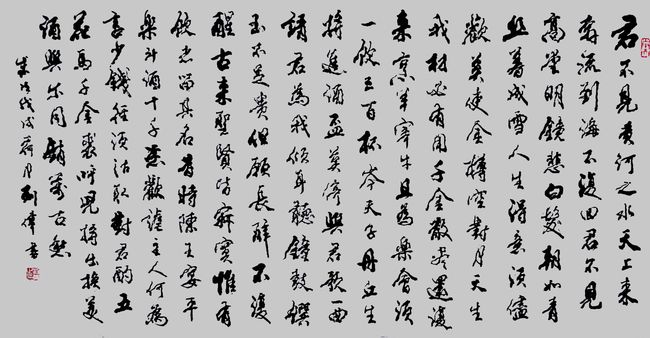 君不見黄河之水天上来
奔流到海不復回君不見
高堂明鏡悲白髮朝如青
丝暮成雪人生得意须儘
歡莫使金樽空對月天生
我材必有用千金散盡還復
来烹羊宰牛且為樂會须
一飲三百杯岑夫子丹丘生
將進酒盃莫停與君歌一曲
請君為我傾耳聽鐘鼓饌
玉不足貴但願長醉不復
醒古来聖賢皆寂寞惟有
飲者留其名昔時陳王宴平
樂斗酒十千恣歡謔主人何為
言少錢徑须沽取對君酌五
花馬千金裘呼兒將出換美
酒與尔同銷萬古愁
戊戌月刘偉書